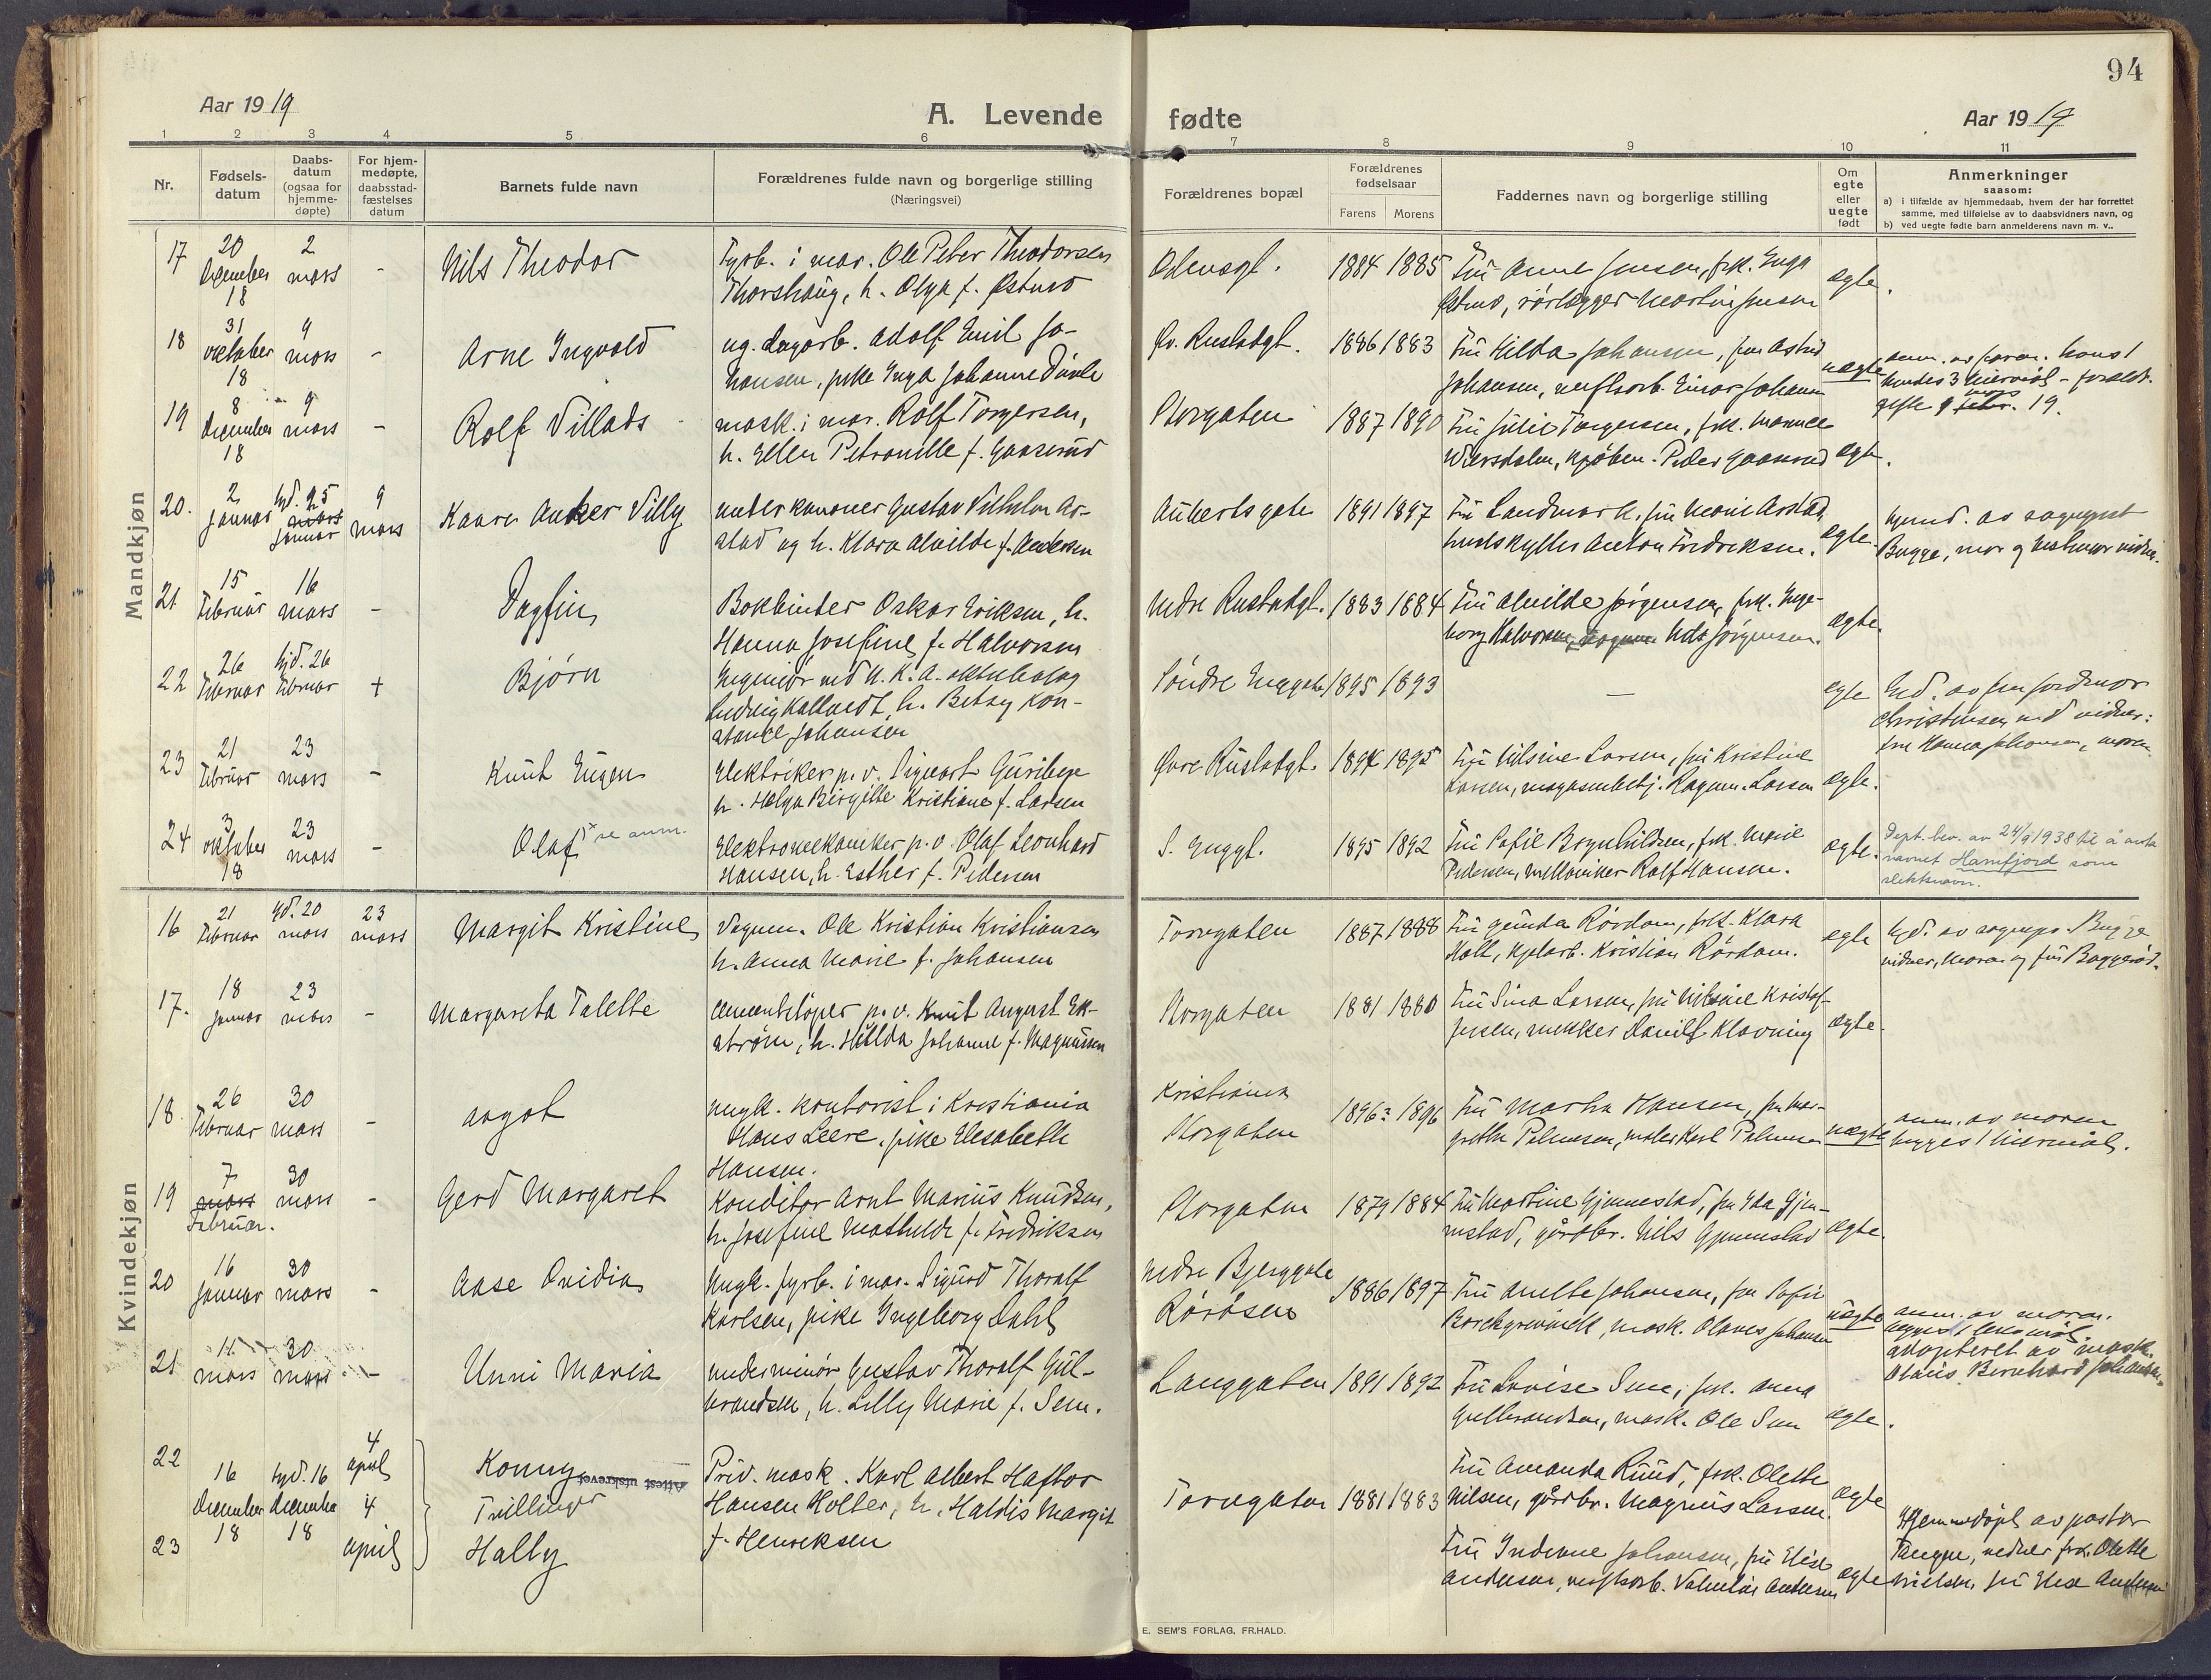 94
Aar 1919
A. Levende fødte
Aar 1919
1 2 3 4 5 6 7 8 9 10 11
Nr.
Fødsels-
datum
Daabs-
datum
(ogsaa for
hjemme-
døpte)
For hjem-
medøpte,
daabsstad-
fæstelses
datum
Barnets fulde navn
Forældrenes fulde navn og borgerlige stilling
(Næringsvei)
Forældrenes bopæl
Forældrenes
fødselsaar
Farens Morens
Faddernes navn og borgerlige stilling
Om
egte
eller
uegte
født
Anmerkninger
saasom:
a) i tilfælde av hjemmedaab, hvem der har forrettet
samme, med tilføielse av to daabsvidners navn, og
b) ved uegte fødte barn anmelderens navn m. v..
Mandkjøn
17 20 december 18 2 mars - Nils Theodor
Fyrb. i mar. Ole Peter Theodorsen
Thorshaug, h. Olga f. Østmo
Odensgt. 1884 1885
Fru Anne Jensen, frk. Inga
Østmo, rørlægger Martin Jensen
egte.
18 31 oktober 18 9 mars - Arne Ingvald
ug. dagarb. Adolf Emil Jo-
hansen, pike Inga Johanne
Øv. Rustadgt. 1886 1883
Fru Hilda Johansen, fru Astrid
Johansen, verftsarb. Einar Johansen
uegte
19 8 december 18 9 mars - Rolf Villads
mask. i mar. Rolf Torgersen,
h. Ellen Petronelle f. Gaaserud
Storgaten 1887 1890
Fru Julie Torgersen, frk.
kjøbm. Peder Gaaserud
egte.
gifte 9 19.
20. 2 januar hjd. 25 januar 9 mars Kaare Anker Villy
underkanoner Gustav Vilhelm Ar-
stad og h. Klara Alvilde f. Andersen
Aubertsgate 1891 1897
Fru Landmark, fru Marie Arstad,
Anton Fredriksen.
egte
hjemd. av sogneprest
Bugge, mor og
21 15 februar 16 mars - Dagfin
Bokbinder Oskar Eriksen, h.
Hanna Josefine f. Halvorsen
Nedre Rustadgt. 1883 1884
Fru Alvilde Jørgensen, frk. Inge-
borg Halvorsen, Jørgensen.
egte.
22 26 februar hjd. 26 februar + Bjørn
Ingeniør ved N. K. A.
Ludvig h. Betsy Kon-
stance Johansen
Søndre Enggate 1895 1893
—
egte
av fru jordmor
Christensen med vidner:
fru Hanna Johansen,
23 21 februar 23 mars - Knut Eugen
Elektriker p. v. Sigvart
h. Helga Birgitte Kristiane f. Larsen
Øvre Rustadgt. 1894 1895
Fru Nilsine Larsen, fru Kristine
Larsen, magasinbetj. Ragnv. Larsen
egte.
24 3 oktober 18 23 mars - Olaf x se anm.
Elektromekaniker p. v. Olaf Leonhard
Hansen, h. Esther f. Pedersen
S. Enggt. 1895 1892
Fru Sofie Brynhildsen, frk. Marie
Pedersen, mekaniker Rolf Hansen.
egte.
Dept. bev. av 24/9 1938 til å anta
navnet Hamfjord som
slektsnavn.
Kvindekjøn
16 21 februar hjd. 20 mars 23 mars Margit Kristine
Vognm. Ole Kristian Kristiansen
h. Anna Marie f. Johansen
Torvgaten 1887 1888
Fru Gunda Rørdam, frk. Klara
Holt, Kristian Rørdam.
egte
hjd. av sognepr. Bugge
vidner, moren og fru
17. 18 januar 23 mars - Margareta Talette
cementstøper p. v. Knut August Ek-
strøm, h. Hilda Johanne f. Magnussen
Storgaten 1881 1880
Fru Sina Larsen, fru Nilsine Kristof-
fersen, snekker Klavning
egte
18. 26 februar 30 mars - Aagot
ungk. kontorist i Kristiania
Hans Leere, pike Elisabeth
Hansen.
Kristiania
Storgaten 1896: 1896
Fru Martha Hansen, fru Mar-
grethe maler Karl
uegte
anm. av moren
19 7 mars februar. 30 mars - Gerd Margaret
Konditor Arnt Marius Knudsen,
h. Josefine Mathilde f. Fredriksen
Storgaten 1879 1884
Fru Martine Gjennestad, fru Ida Gjen-
nestad, gårdbr. Nils Gjennestad
egte.
20 16 januar 30 mars - Aase Ovidia
Ungk. fyrb. i mar. Sigurd Thoralf
Karlsen, pike Ingeborg Dahl
Nedre Bjerggate
Røråsen 1886 1897
Fru Anette Johansen, fru Sofie
mask. Olaves Johansen
uegte
anm. av moren.
adopteret av mask.
Olaus Bernhard Johansen.
21 11 mars 30 mars - Unni Maria
underminør Gustav Thoralf Gul-
brandsen, h. Lilly Marie f. Sem.
Langgaten 1891 1892
Fru Lovise Sem, frk. Anna
Gulbrandsen, mask. Ole Sem
egte.
22 16 december 18 hjd. 16 december 18 4 april Konny
Attest utskrevet
Tvillinger
23 4 april Hally
Priv. mask. Karl Albert Haftor
Hansen Holter, h. Haldis Margit
f. Henriksen
Torvgaten 1881 1883
Fru Amanda Ruud, frk. Olette
Nilsen, gårdbr. Magnus Larsen.
egte
Fru Indiane Johansen, fru Elise
Andersen, verftsarb. Andersen
egte
Hjemmedøpt av pastor
vidner frk. Olette
Nielsen, fru Elise Andersen
E. SEM'S FORLAG, FR.HALD.